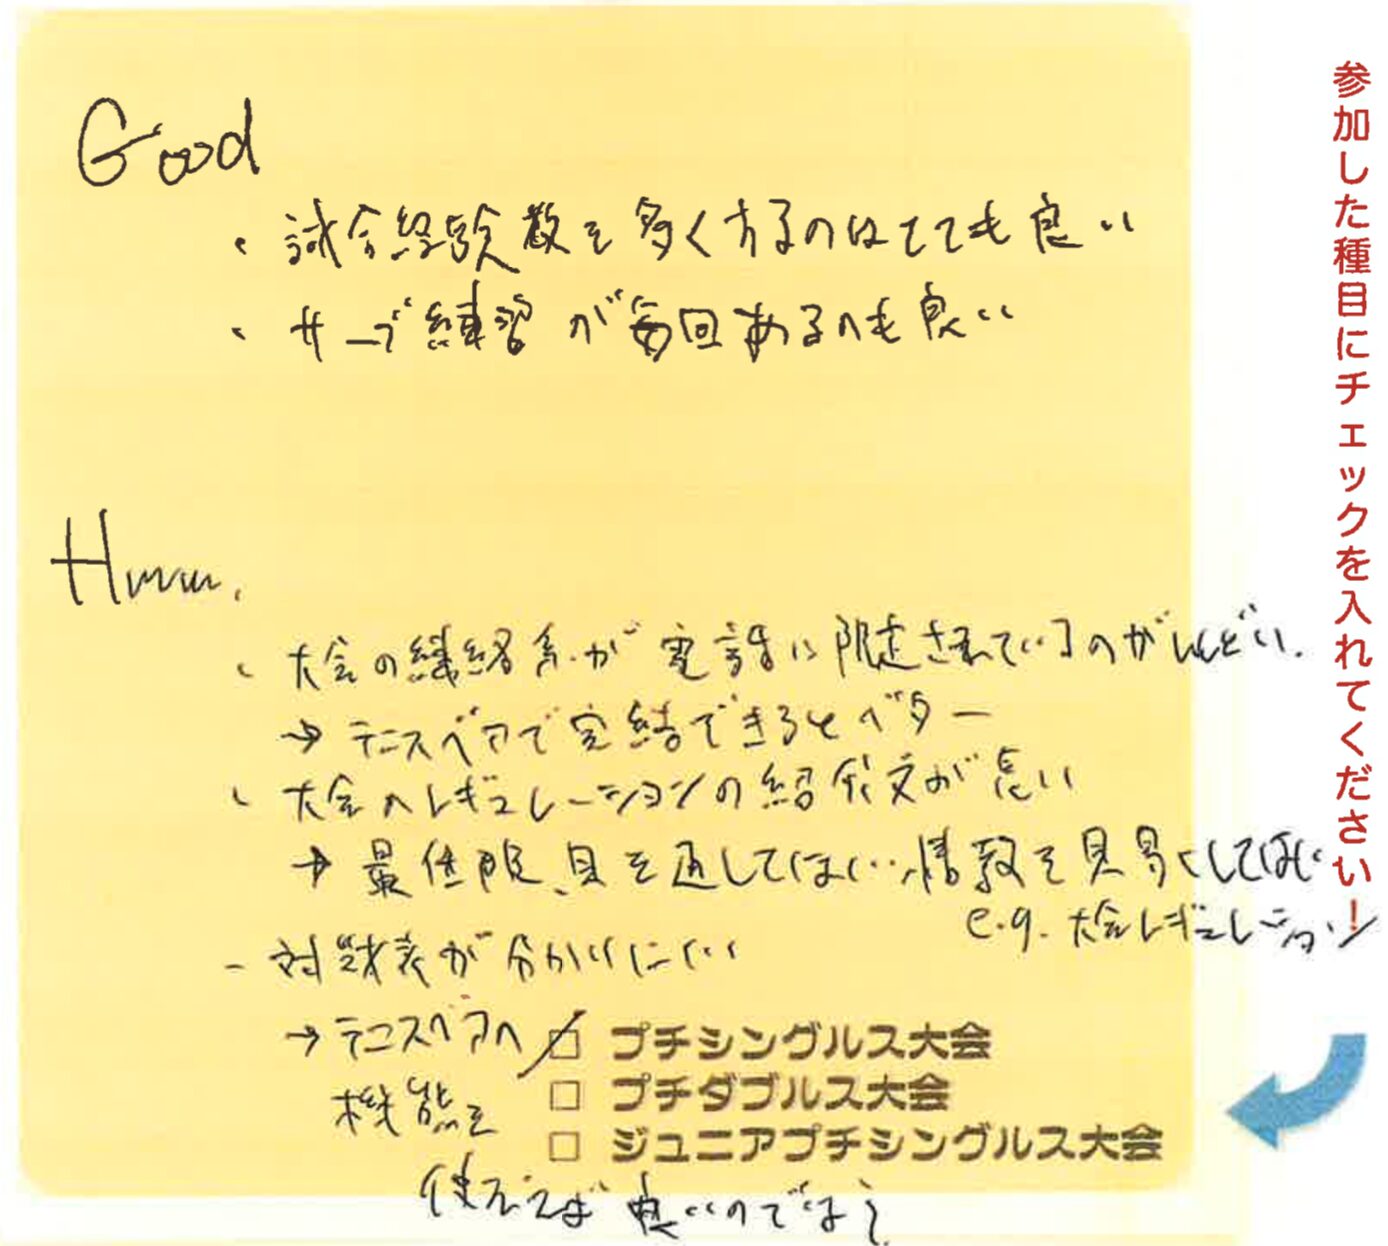 Good
・試合経験数を多くするのはとても良い
・サーブ練習が毎回あるのも良い
Hmm.
・大会の連絡系が電話に限定されているのがしんどい.
→テニスベアで完結できるとベター
・大会のレギュレーションの紹介文が長い
→最低限、目を通してほしい情報を見易くしてほしい
e.g. 大会レギュレーション
- 対戦表が分かりにくい
→テニスベアの
機能を
使えば良いのでは?
□ プチシングルス大会
□ プチダブルス大会
□ ジュニアプチシングルス大会
参加した種目にチェックを入れてください!